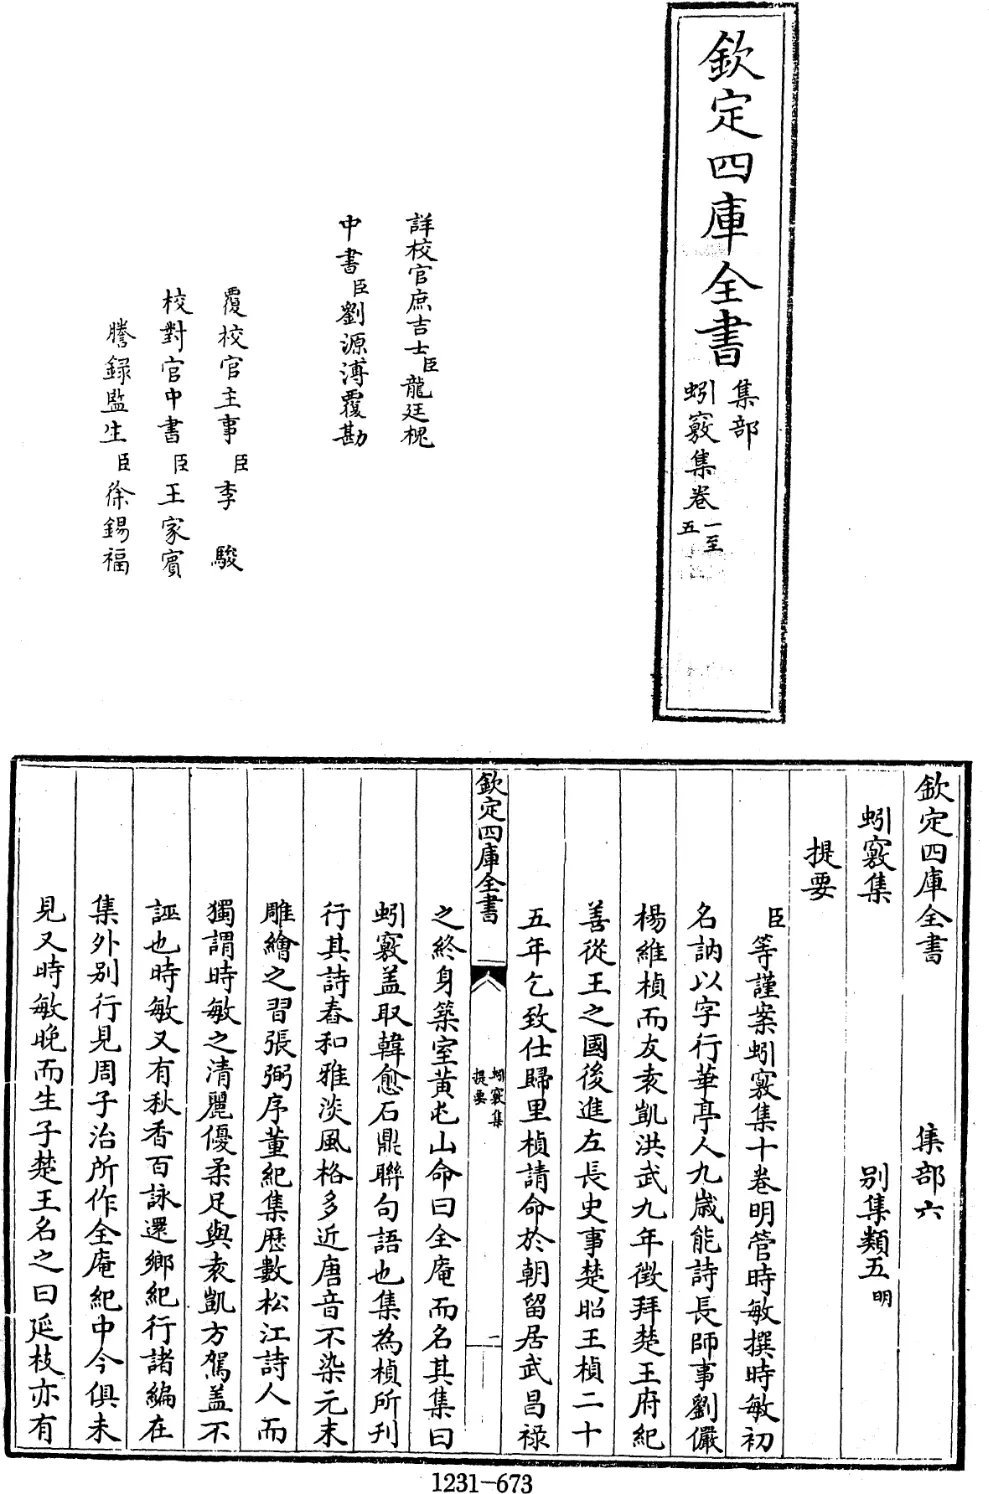 欽定四庫全書
集部
蚓竅集卷一至五
詳校官庶吉士臣龍廷槐
中書臣劉源溥覆勘
覆校官主事臣李駿
校對官中書臣王家賓
謄録監生臣徐錫福
欽定四庫全書 集部六
蚓竅集 别集類五明
提要
臣等謹案蚓竅集十卷明管時敏撰時敏初
名訥以字行華亭人九歳能詩長師事劉儼
楊維楨而友袁凱洪武九年徵拜楚王府紀
善從王之國後進左長史事楚昭王楨二十
五年乞致仕歸里楨請命於朝留居武昌禄
欽定四庫全書
蚓竅集
提要
二
之終身築室黄屯山命曰全庵而名其集曰
蚓竅盖取韓愈石鼎聯句語也集為楨所刊
行其詩春和雅淡風格多近唐音不染元末
雕繪之習張弼序董紀集歴數松江詩人而
獨謂時敏之清麗優柔足與袁凱方駕盖不
誣也時敏又有秋香百詠還鄉紀行諸編在
集外别行見周子治所作全庵紀中今俱未
見又時敏晚而生子楚王名之曰延枝亦有
1231-673